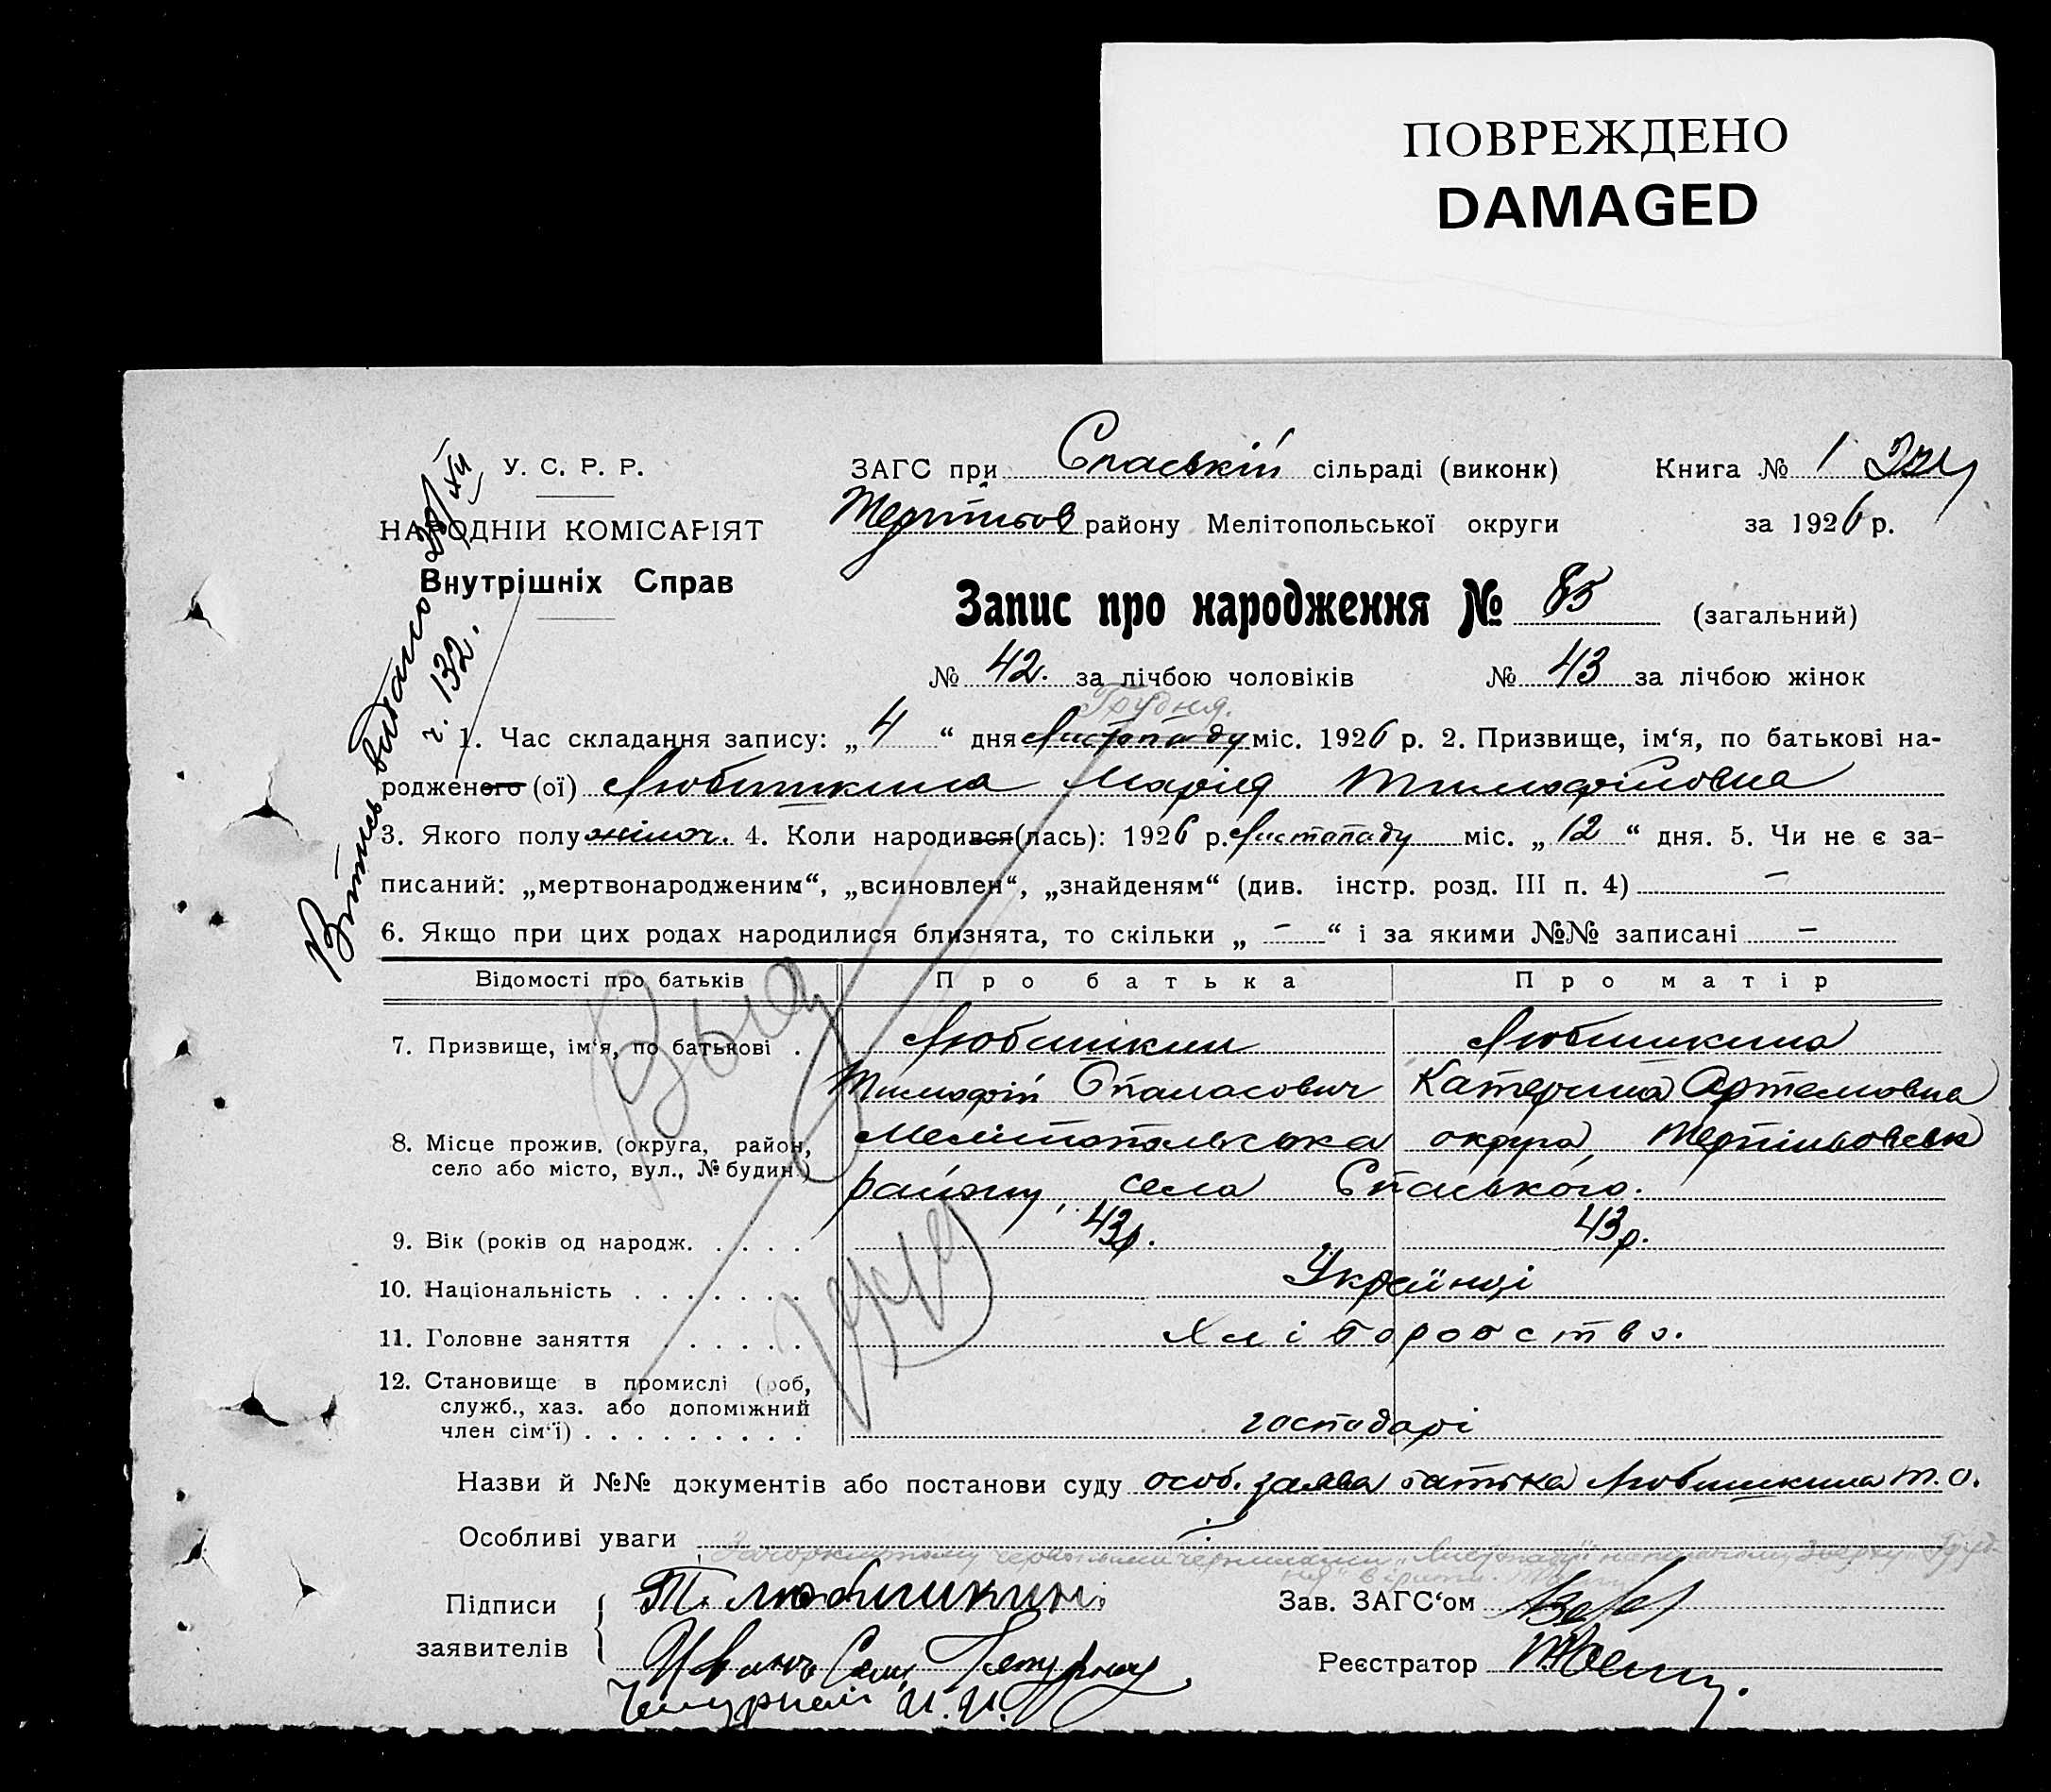 ПОВРЕЖДЕНО
DAMAGED
У. С. Р. Р.
НАРОДНІЙ КОМІСАРІЯТ
Внутрішніх Справ
ЗАГС при Спаській сільраді (виконк)
району Мелітопольської округи
Книга № 1
за 1926 р.
Запис про народження № 85 (загальний)
№ 42. за лічбою чоловіків № 43 за лічбою жінок
Грудня.
1. Час складання запису: „4“ дня Листопаду міс. 1926 р. 2. Призвище, ім‘я, по батькові на-
родженого (ої) Любишкина Марія Тимофіївна
3. Якого полу жіноч. 4. Коли народився(лась): 1926 р. Листопаду міс. „12“ дня. 5. Чи не є за-
писаний: „мертвонародженим“, „всиновлен“, „знайденям“ (див. інстр. розд. III п. 4) –
6. Якщо при цих родах народилися близнята, то скільки „ – “ і за якими №№ записані –
Відомості про батьків Про батька Про матір
7. Призвище, ім‘я, по батькові . Любишкин Любишкина
Тимофій Опанасович Катерина Артемовна
8. Місце прожив. (округа, район, Мелітопольська округа,
село або місто, вул., № будин.) району, села Спаського.
9. Вік (років од народж. . . . . 43 р. 43 р.
10. Національність . . . . . . . Українці
11. Головне заняття . . . . . Хліборобство.
12. Становище в промислі (роб,
служб., хаз. або допоміжний
член сім‘ї) . . . . . . . . . господарі
Назви й №№ документів або постанови суду особ. заява батька Любишкина Т. О.
Особливі уваги
Підписи
заявителів
Т. Любишкин
Зав. ЗАГС‘ом
Реєстратор
Витись видано 20/XII
ч. 132.